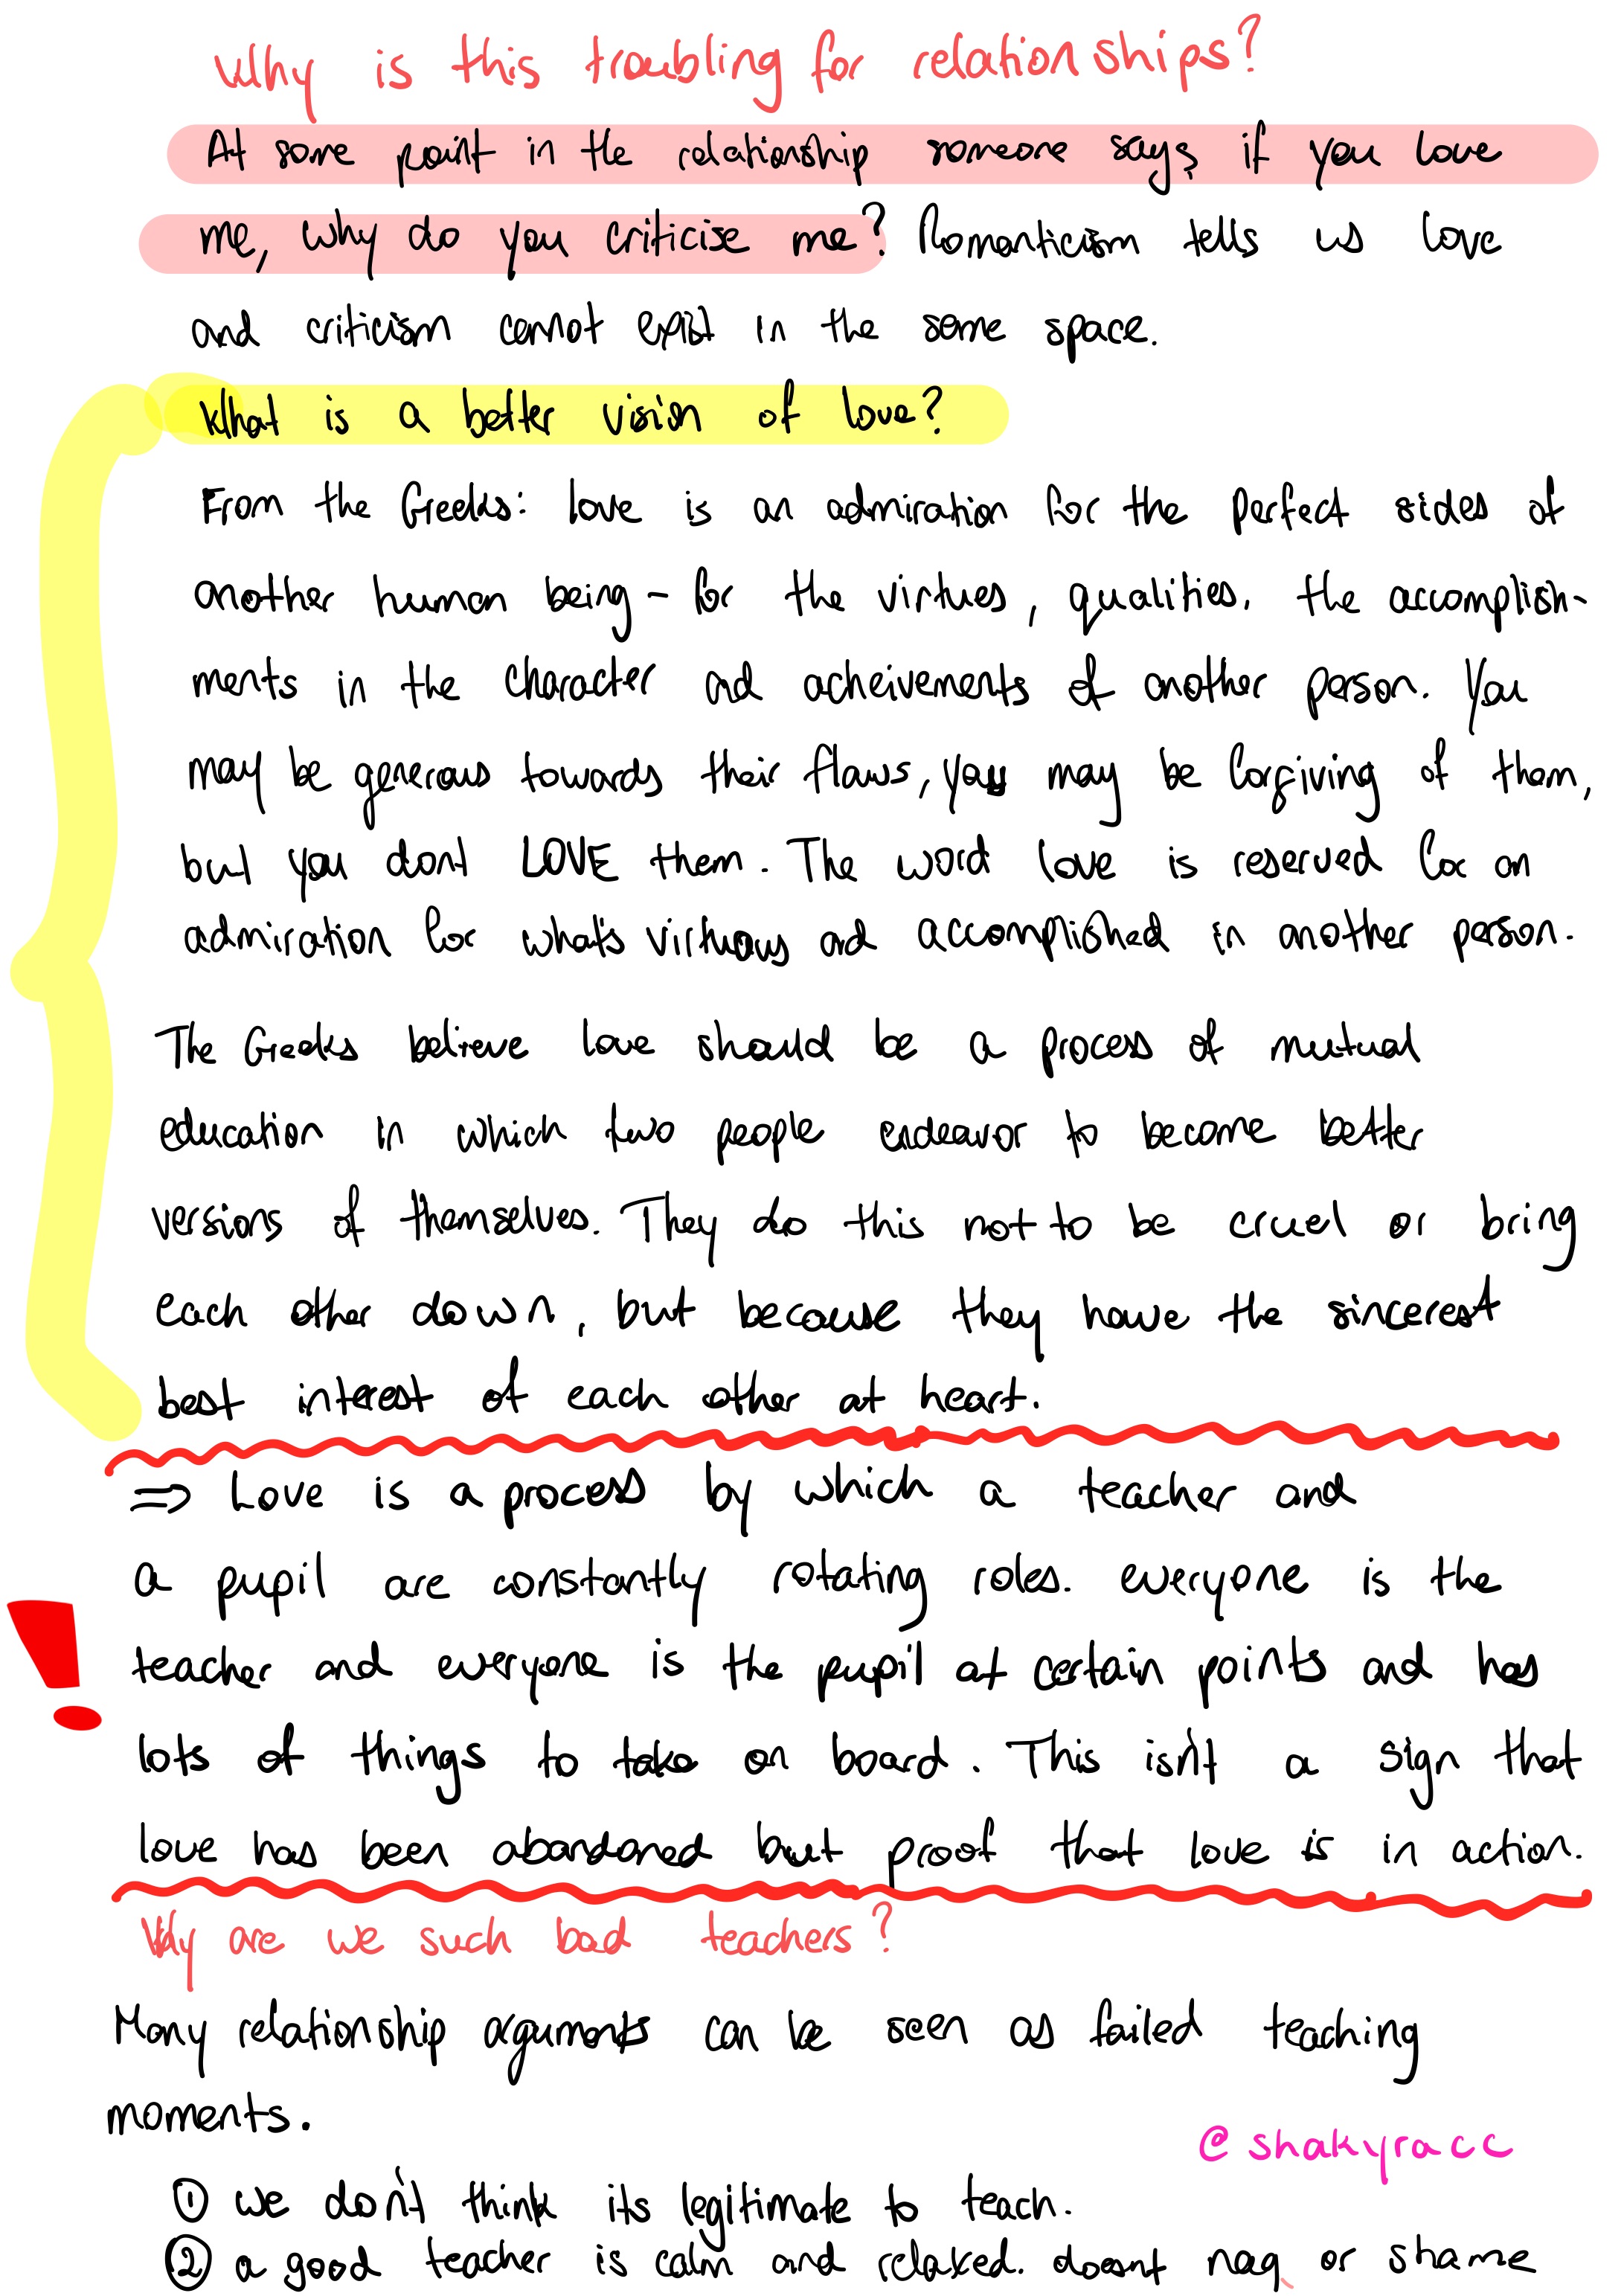 Why is this troubling for relationships?
At some point in the relationship someone says, if you love
me, why do you criticise me? Romanticism tells us love
and criticism cannot exist in the same space.
What is a better vision of love?
From the Greeks: love is an admiration for the perfect sides of
another human being - for the virtues, qualities, the accomplish-
ments in the character and acheivements of another person. You
may be generous towards their flaws, you may be forgiving of them,
but you dont LOVE them. The word love is reserved for an
admiration for what's virtuous and accomplished in another person.
The Greeks believe love should be a process of mutual
education in which two people endeavor to become better
versions of themselves. They do this not to be cruel or bring
each other down, but because they have the sincerest
best interest of each other at heart.
⇒ Love is a process by which a teacher and
a pupil are constantly rotating roles. everyone is the
! teacher and everyone is the pupil at certain points and has
lots of things to take on board. This isn't a sign that
love has been abandoned but proof that love is in action.
Why are we such bad teachers?
Many relationship arguments can be seen as failed teaching
moments.
@shakyracc
① we don't think its legitimate to teach.
② a good teacher is calm and relaxed. doesnt nag or shame